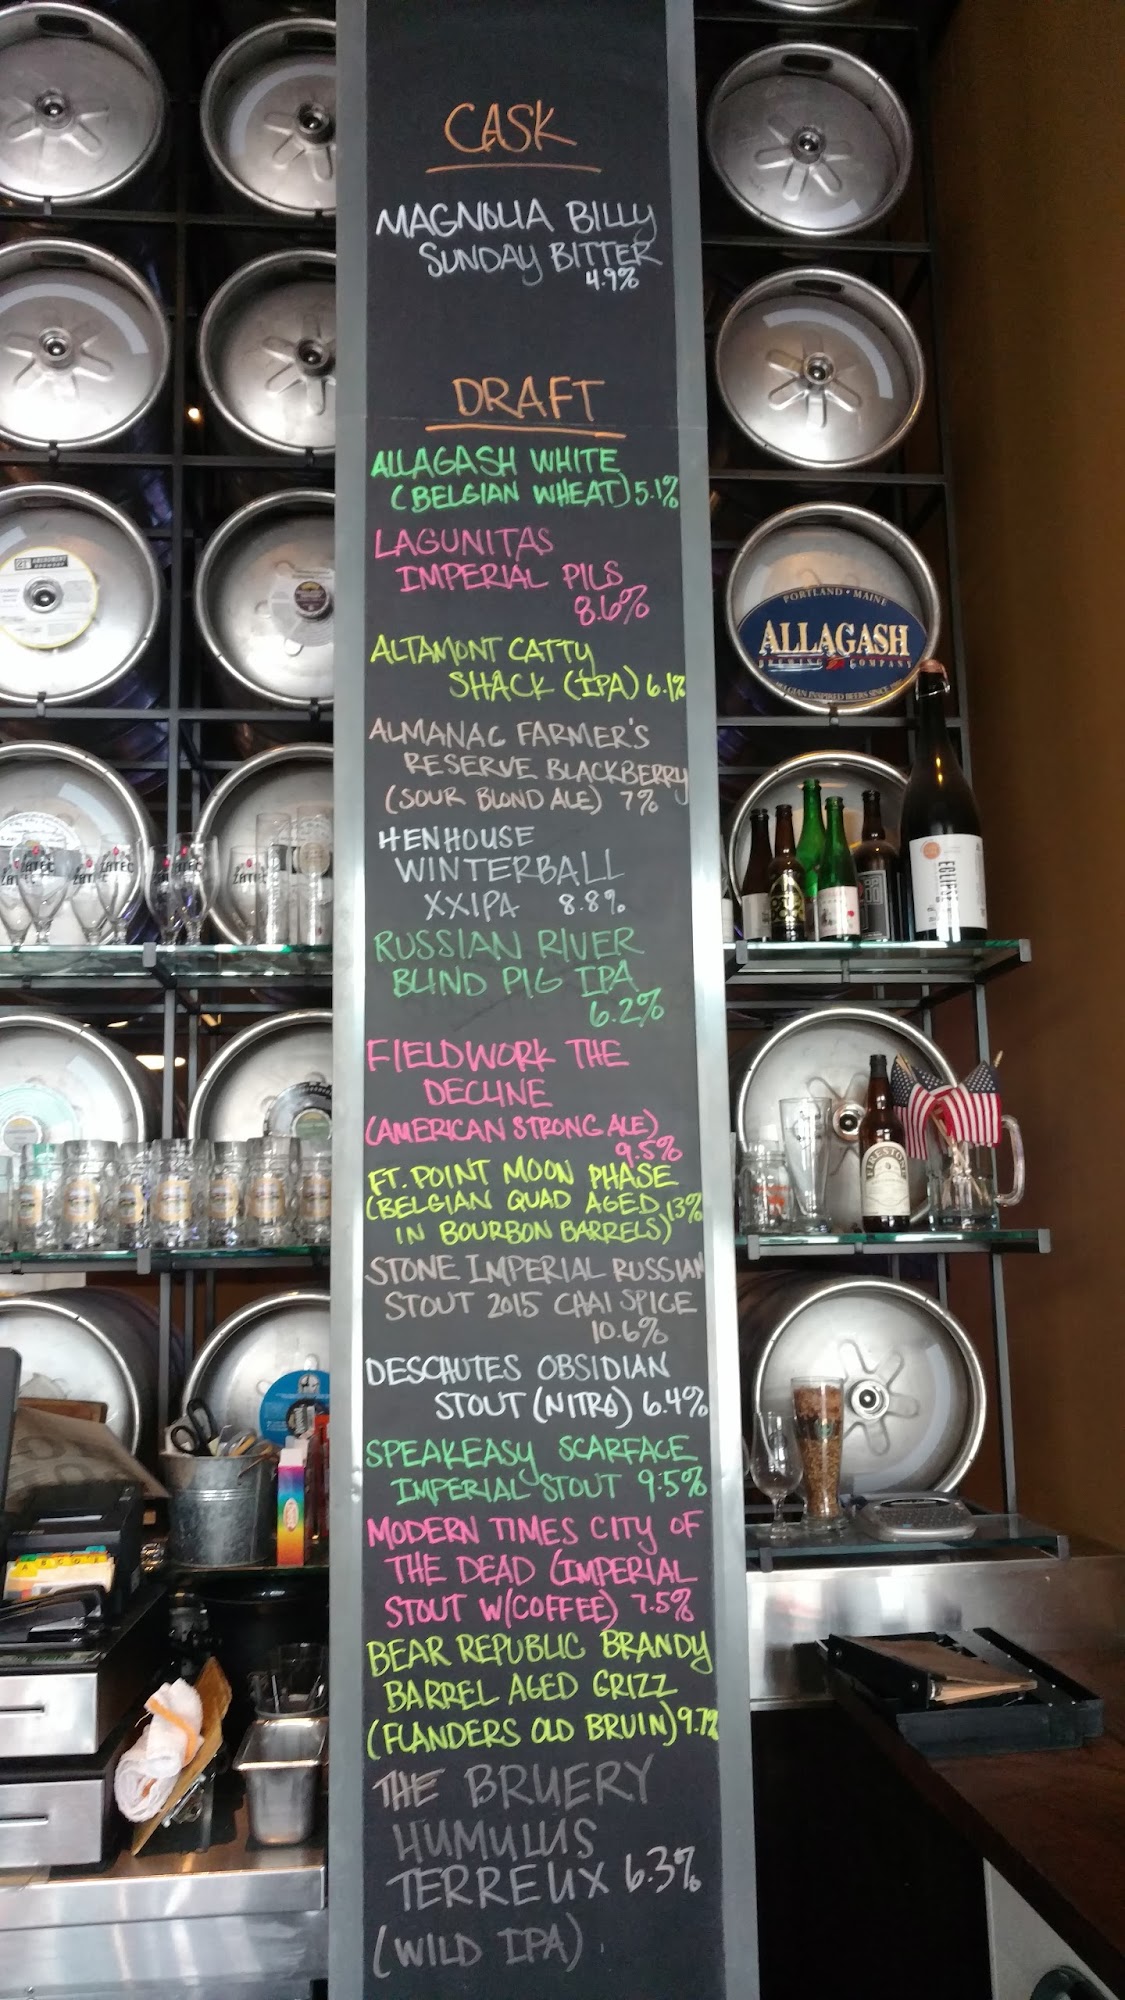 CASK
MAGNOLIA BILLY
SUNDAY BITTER
4.9%
DRAFT
ALLAGASH WHITE
(BELGIAN WHEAT) 5.1%
LAGUNITAS
IMPERIAL PILS
8.6%
ALTAMONT CATTY
SHACK (IPA) 6.1%
ALMANAC FARMER'S
RESERVE BLACKBERRY
(SOUR BLOND ALE) 7%
HENHOUSE
WINTERBALL
XXIPA 8.8%
RUSSIAN RIVER
BLIND PIG IPA
6.2%
FIELDWORK THE
DECLINE
(AMERICAN STRONG ALE)
9.5%
FT. POINT MOON PHASE
(BELGIAN QUAD AGED 13%
IN BOURBON BARRELS)
STONE IMPERIAL RUSSIAN
STOUT 2015 CHAI SPICE
10.6%
DESCHUTES OBSIDIAN
STOUT (NITRO) 6.4%
SPEAKEASY SCARFACE
IMPERIAL STOUT 9.5%
MODERN TIMES CITY OF
THE DEAD (IMPERIAL
STOUT W/COFFEE) 7.5%
BEAR REPUBLIC BRANDY
BARREL AGED GRIZZ
(FLANDERS OLD BRUIN) 9.7%
THE BRUERY
HUMULUS
TERREUX 6.3%
(WILD IPA)
PORTLAND • MAINE
ALLAGASH
BREWING COMPANY
BELGIAN INSPIRED BEERS SINCE
ECLIPSE
FIRESTONE
ZATEC
ZATEC
ZATEC